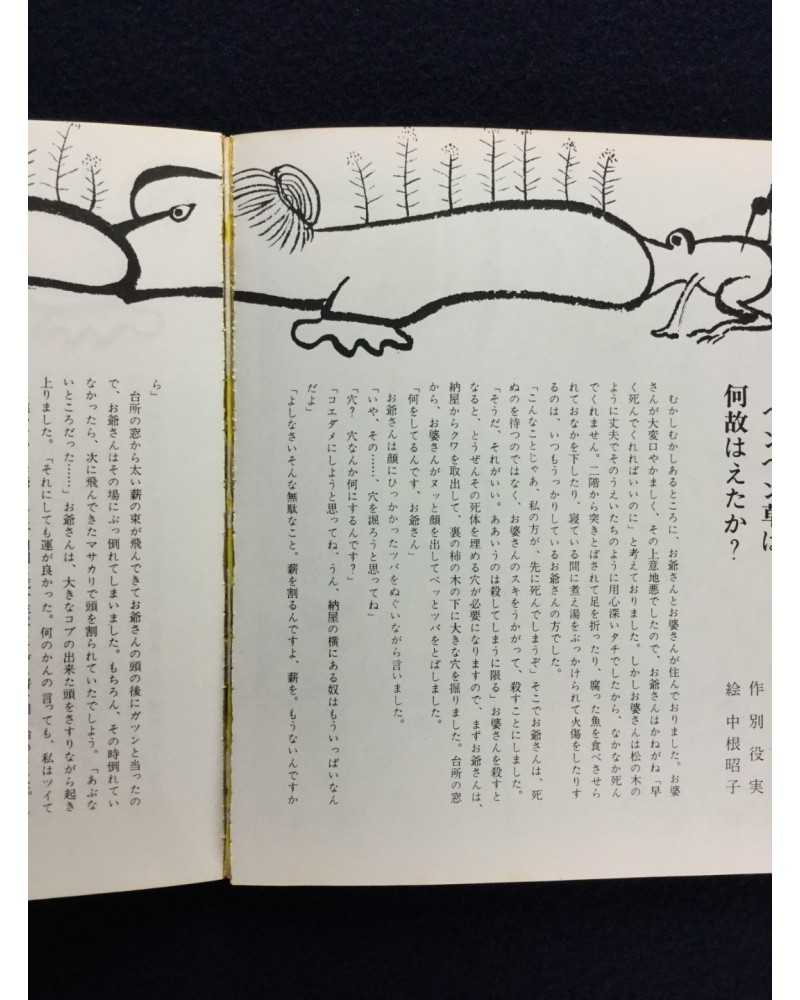 ペンペン草は
何故はえたか？
作 別役実
絵 中根昭子
むかしむかしあるところに、お爺さんとお婆さんが住んでおりました。お婆
さんが大変口やかましく、その上意地悪でしたので、お爺さんはかねがね「早
く死んでくれればいいのに」と考えておりました。しかしお婆さんは松の木の
ように丈夫でそのうえいたちのように用心深いタチでしたから、なかなか死ん
でくれません。二階から突きとばされて足を折ったり、腐った魚を食べさせら
れておなかを下したり、寝ている間に煮え湯をぶっかけられて火傷をしたりす
るのは、いつもうっかりしているお爺さんの方でした。
「こんなことじゃあ、私の方が、先に死んでしまうぞ」そこでお爺さんは、死
ぬのを待つのではなく、お婆さんのスキをうかがって、殺すことにしました。
「そうだ、それがいい。ああいうのは殺してしまうに限る」お婆さんを殺すと
なると、とうぜんその死体を埋める穴が必要になりますので、まずお爺さんは、
納屋からクワを取出して、裏の柿の木の下に大きな穴を掘りました。台所の窓
から、お婆さんがヌッと顔を出してペッとツバをとばしました。
「何をしてるんです、お爺さん」
お爺さんは顔にひっかかったツバをぬぐいながら言いました。
「いや、その……、穴を掘ろうと思ってね」
「穴？　穴なんか何にするんです？」
「コエダメにしようと思ってね、うん、納屋の横にある奴はもういっぱいなん
だよ」
「よしなさいそんな無駄なこと。薪を割るんですよ、薪を。もうないんですか
ら」
台所の窓から太い薪の束が飛んできてお爺さんの頭の後にガツンと当ったの
で、お爺さんはその場にぶっ倒れてしまいました。もちろん、その時倒れてい
なかったら、次に飛んできたマサカリで頭を割られていたでしょう。「あぶな
いところだった……」お爺さんは、大きなコブの出来た頭をさすりながら起き
上りました。「それにしても運が良かった。何のかんの言っても、私はツイて